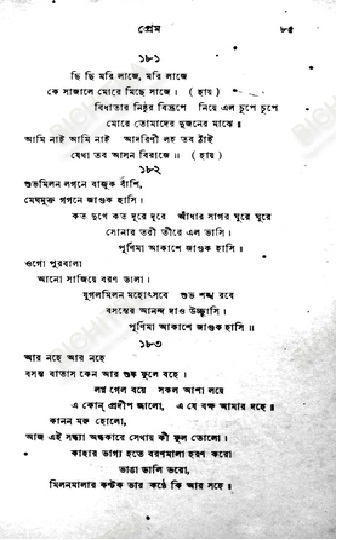 প্রেম ৮৫
১৮১
ছি ছি মরি লাজে, মরি লাজে
কে সাজালে মোরে মিছে সাজে। (হায়)
বিধাতার নিষ্ঠুর বিদ্রূপে নিয়ে এল চুপে চুপে
মোরে তোমাদের দুজনের মাঝে॥
আমি নাই আমি নাই আদরিণী লহ তব ঠাঁই
যেথা তব আসন বিরাজে॥ (হায়)
১৮২
শুভমিলন লগনে বাজুক বাঁশি,
মেঘমুক্ত গগনে জাগুক হাসি।
কত দুখে কত দূরে দূরে আঁধার সাগর ঘুরে ঘুরে
সোনার তরী তীরে এল ভাসি।
পূর্ণিমা আকাশে জাগুক হাসি।
ওগো পুরবালা
আনো সাজিয়ে বরণ ডালা।
যুগলমিলন মহোৎসবে শুভ শঙ্খ রবে
বসন্তের আনন্দ দাও উচ্ছ্বাসি।
পূর্ণিমা আকাশে জাগুক হাসি॥
১৮৩
আর নহে আর নহে
বসন্ত বাতাস কেন আর শুষ্ক ফুলে বহে।
লগ্ন গেল বয়ে সকল আশা লয়ে
এ কোন্ প্রদীপ জালো, এ যে বক্ষ আমার দহে॥
কানন মরু হোলো,
আজ এই সন্ধ্যা অন্ধকারে সেথায় কী ফুল তোলো।
কাহার ভাগ্য হতে বরণমালা হরণ করো
ভাঙা ডালি ভরো,
মিলনমালার কণ্টক ভার কণ্ঠে কি আর সহে॥